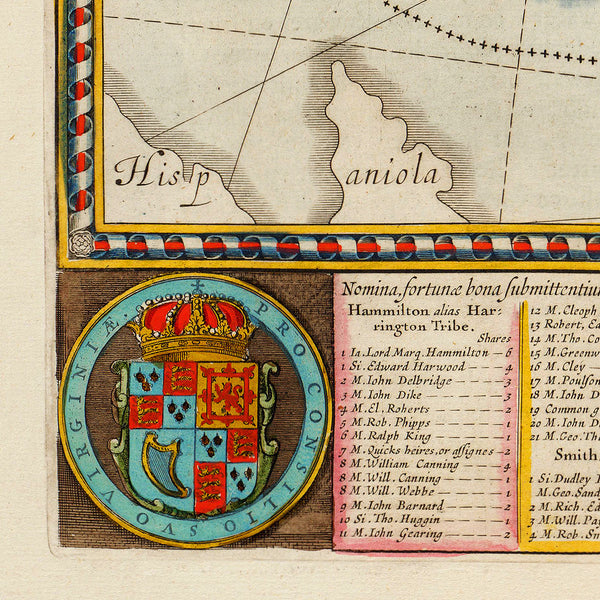 Hisp aniola
PRO CONSILIO SVO VIRGINIÆ
Nomina, fortunæ bona submittentiu
Hammilton alias Har:
rington Tribe.
Shares
1 Ia. Lord Marq. Hammilton — 6
1 Si. Edward Harwood — 4
2 M. Iohn Delbridge — 3
3 M. Iohn Dike — 3
4 M. El. Roberts — 2
5 M. Rob. Phipps — 1
6 M. Ralph King — 1
7 M. Quicks heires, or assignes - 2
8 M. William Canning — 4
8 M. Will. Canning — 1
8 M. Will. Webbe — 1
9 M. Iohn Barnard — 2
10 Si. Tho. Huggin — 1
11 M. Iohn Gearing — 2
12 M. Cleoph
13 Robert, Ea
14 M. Tho. Co
15 M. Greenw
16 M. Cley
17 M. Poulson
18 M. Iohn D
19 Common g
20 M. Iohn D
21 M. Geo. Th
Smith
1 Si. Dudley
M. Geo. Sand
2 M. Rich. Ed
3 M. Will. Pa
4 M. Rob. Sm